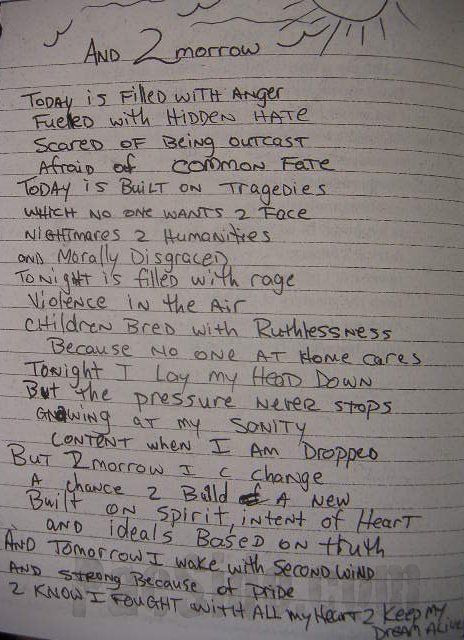 And 2morrow
Today is Filled with Anger
Fueled with Hidden Hate
Scared of Being Outcast
Afraid of Common Fate
Today is Built on Tragedies
which no one wants 2 Face
Nightmares 2 Humanities
and Morally Disgraced
Tonight is filled with rage
Violence in the Air
Children Bred with Ruthlessness
Because no one at Home cares
Tonight I Lay my Head Down
But the pressure never stops
Gnawing at my Sanity
content when I am Dropped
But 2morrow I c change
A chance 2 Build A New
Built on spirit, intent of Heart
and ideals Based on truth
And Tomorrow I wake with second wind
and strong Because of pride
2 know I fought with all my Heart 2 Keep my
Dream Alive